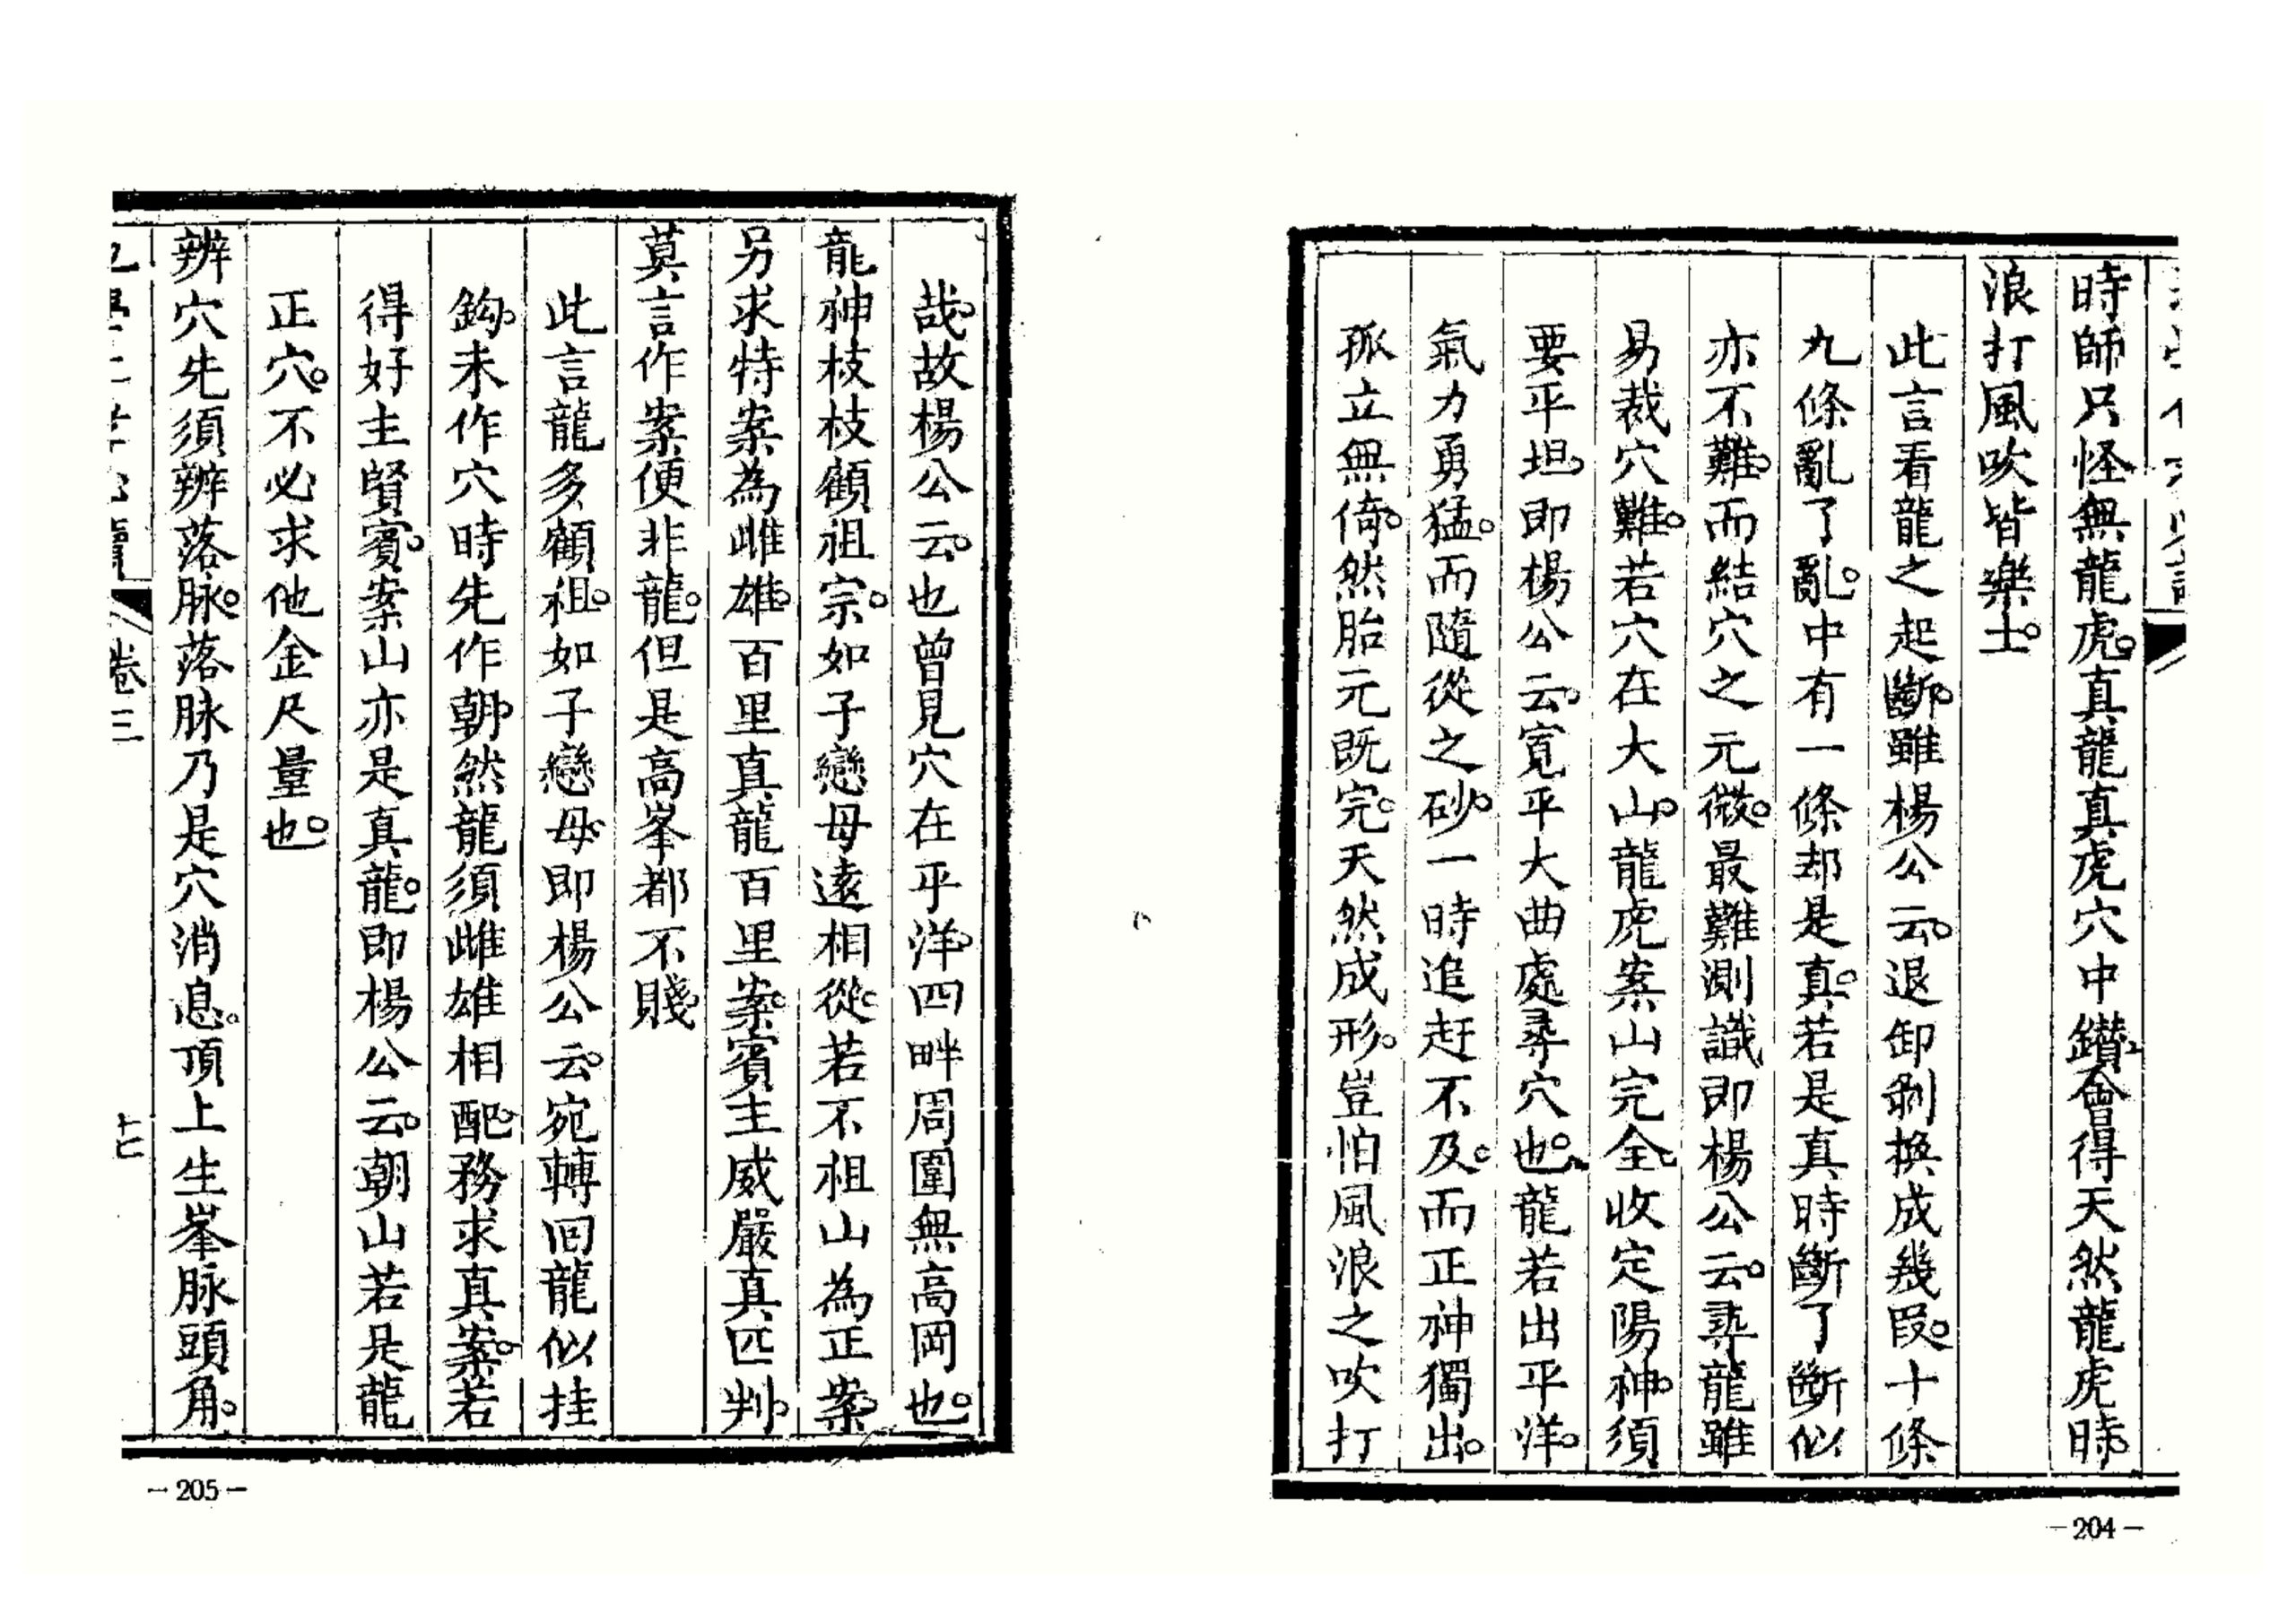 時師只怪無龍虎。真龍真虎穴中鑽。會得天然龍虎時。
浪打風吹皆樂士。
此言看龍之起斷。雖楊公云。退卸剝換成幾段。十條
九條亂了亂。中有一條却是真。若是真時斷了斷似
亦不難。而結穴之元微。最難測識即楊公云。尋龍雖
易裁穴難。若穴在大山。龍虎案山完全收定陽神。須
要平坦。即楊公云。寬平大曲處尋穴也。龍若出平洋。
氣力勇猛。而隨從之砂。一時追赶不及。而正神獨出。
孤立無倚。然胎元既完。天然成形。豈怕風浪之吹打
－204－
哉。故楊公云。也曾見穴在平洋。四畔周圍無高岡也。
龍神枝枝顧祖宗。如子戀母遠相從。若不祖山為正案。
另求特案為雌雄。百里真龍百里案。賓主威嚴真匹判。
莫言作案便非龍。但是高峯都不賤。
此言龍多顧祖。如子戀母。即楊公云。宛轉回龍似挂
鈎。未作穴時先作朝。然龍須雌雄相配。務求真案。若
得好主賢賓。案山亦是真龍。即楊公云。朝山若是龍
正穴。不必求他金尺量也。
辨穴先須辨落脉。落脉乃是穴消息。頂上生峯脉頭角。
卷三
十七
－205－